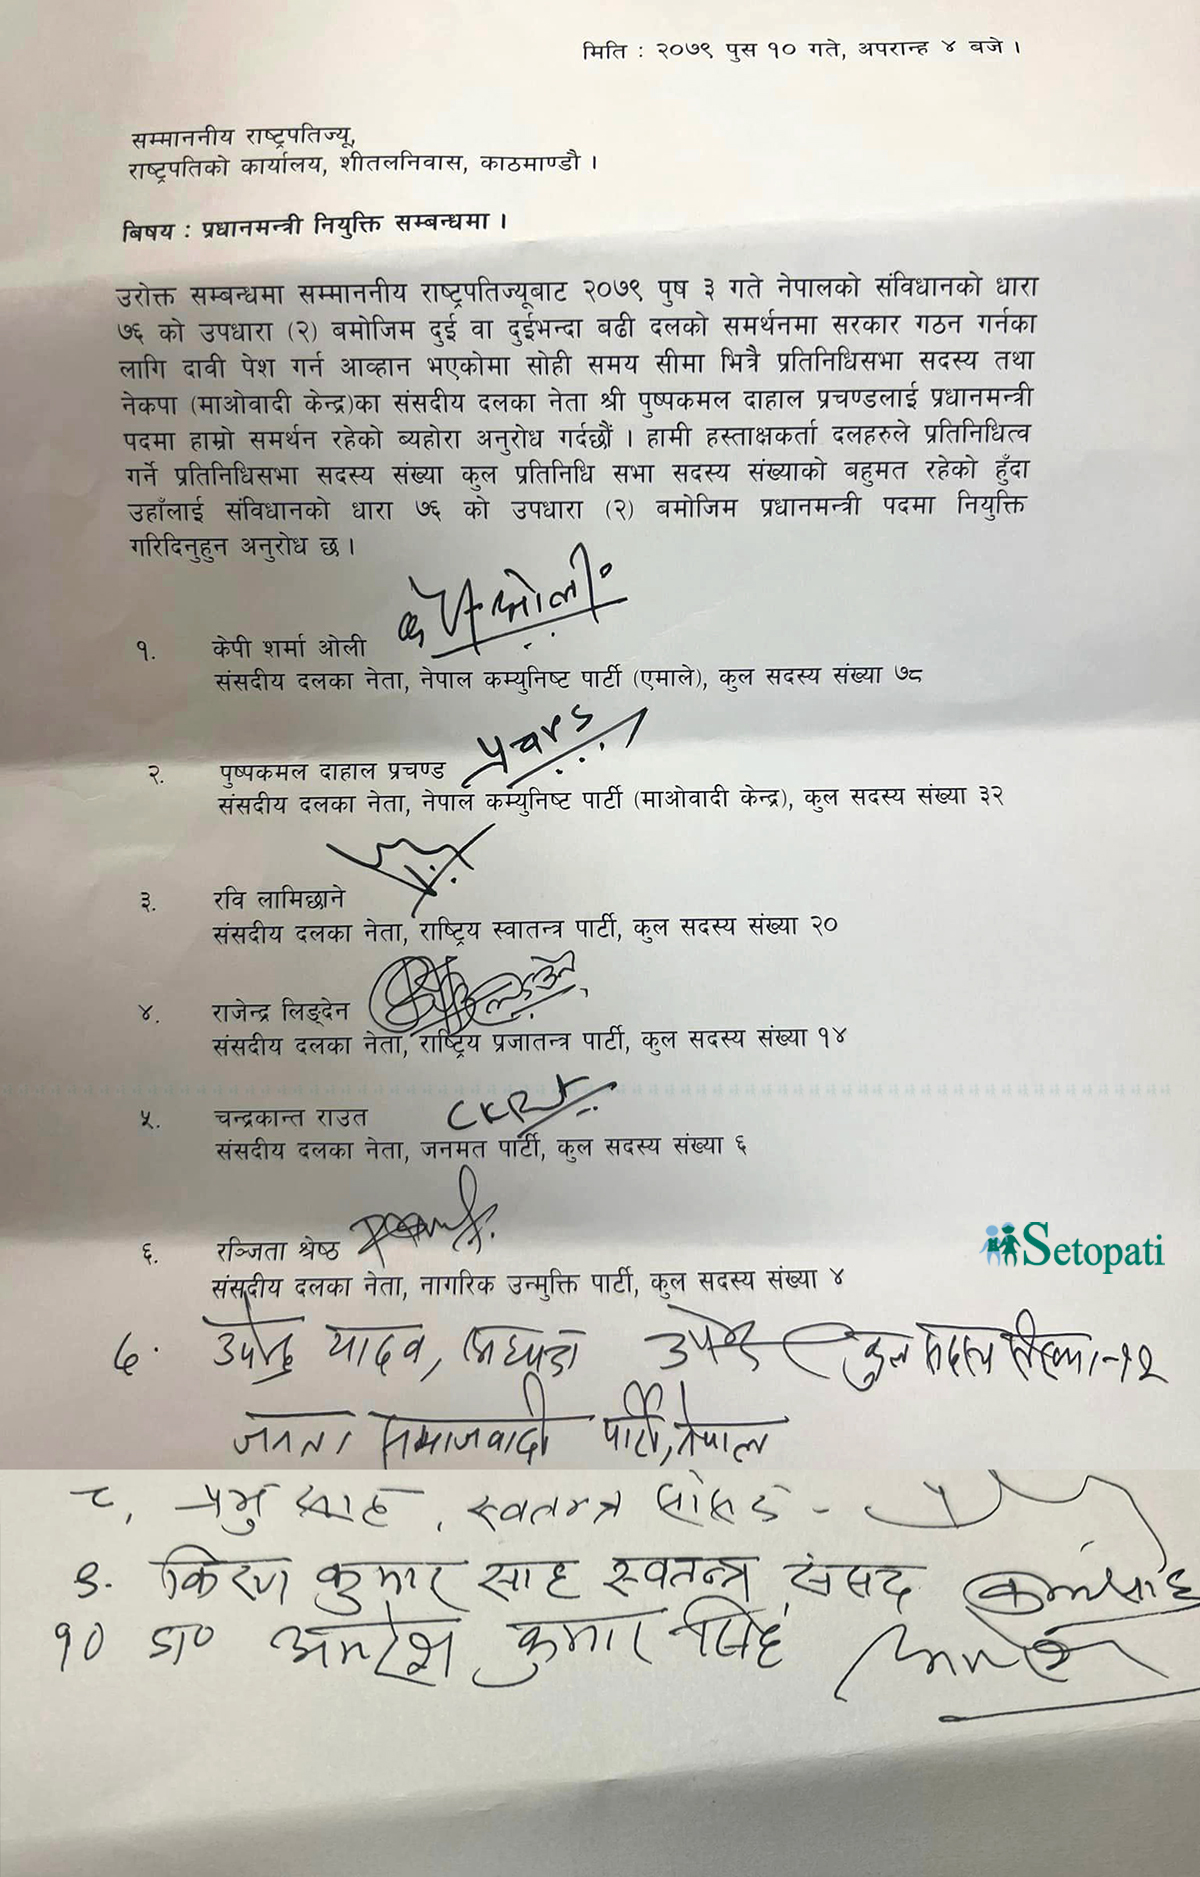 मिति : २०७९ पुस १० गते, अपरान्ह ४ बजे ।
सम्माननीय राष्ट्रपतिज्यू,
राष्ट्रपतिको कार्यालय, शीतलनिवास, काठमाण्डौ ।
बिषय : प्रधानमन्त्री नियुक्ति सम्बन्धमा ।
उरोक्त सम्बन्धमा सम्माननीय राष्ट्रपतिज्यूबाट २०७९ पुष ३ गते नेपालको संविधानको धारा
७६ को उपधारा (२) बमोजिम दुई वा दुईभन्दा बढी दलको समर्थनमा सरकार गठन गर्नका
लागि दावी पेश गर्न आव्हान भएकोमा सोही समय सीमा भित्रै प्रतिनिधिसभा सदस्य तथा
नेकपा (माओवादी केन्द्र)का संसदीय दलका नेता श्री पुष्पकमल दाहाल प्रचण्डलाई प्रधानमन्त्री
पदमा हाम्रो समर्थन रहेको ब्यहोरा अनुरोध गर्दछौं । हामी हस्ताक्षकर्ता दलहरुले प्रतिनिधित्व
गर्ने प्रतिनिधिसभा सदस्य संख्या कुल प्रतिनिधि सभा सदस्य संख्याको बहुमत रहेको हुँदा
उहाँलाई संविधानको धारा ७६ को उपधारा (२) बमोजिम प्रधानमन्त्री पदमा नियुक्ति
गरिदिनुहुन अनुरोध छ ।
के पी ओली
१. केपी शर्मा ओली
संसदीय दलका नेता, नेपाल कम्युनिष्ट पार्टी (एमाले), कुल सदस्य संख्या ७८
प्रचण्ड
२. पुष्पकमल दाहाल प्रचण्ड
संसदीय दलका नेता, नेपाल कम्युनिष्ट पार्टी (माओवादी केन्द्र), कुल सदस्य संख्या ३२
३. रवि लामिछाने
संसदीय दलका नेता, राष्ट्रिय स्वातन्त्र पार्टी, कुल सदस्य संख्या २०
४. राजेन्द्र लिङ्देन
संसदीय दलका नेता, राष्ट्रिय प्रजातन्त्र पार्टी, कुल सदस्य संख्या १४
५. चन्द्रकान्त राउत CKRaut
संसदीय दलका नेता, जनमत पार्टी, कुल सदस्य संख्या ६
६. रञ्जिता श्रेष्ठ
संसदीय दलका नेता, नागरिक उन्मुक्ति पार्टी, कुल सदस्य संख्या ४
Setopati
७. उपेन्द्र यादव, अध्यक्ष उपेन्द्र कुल सदस्य संख्या-१२
जनता समाजवादी पार्टी, नेपाल
८. प्रभु साह, स्वतन्त्र सांसद -
९. किरण कुमार साह स्वतन्त्र संसद
१० डा० अमरेश कुमार सिंह अमरेश